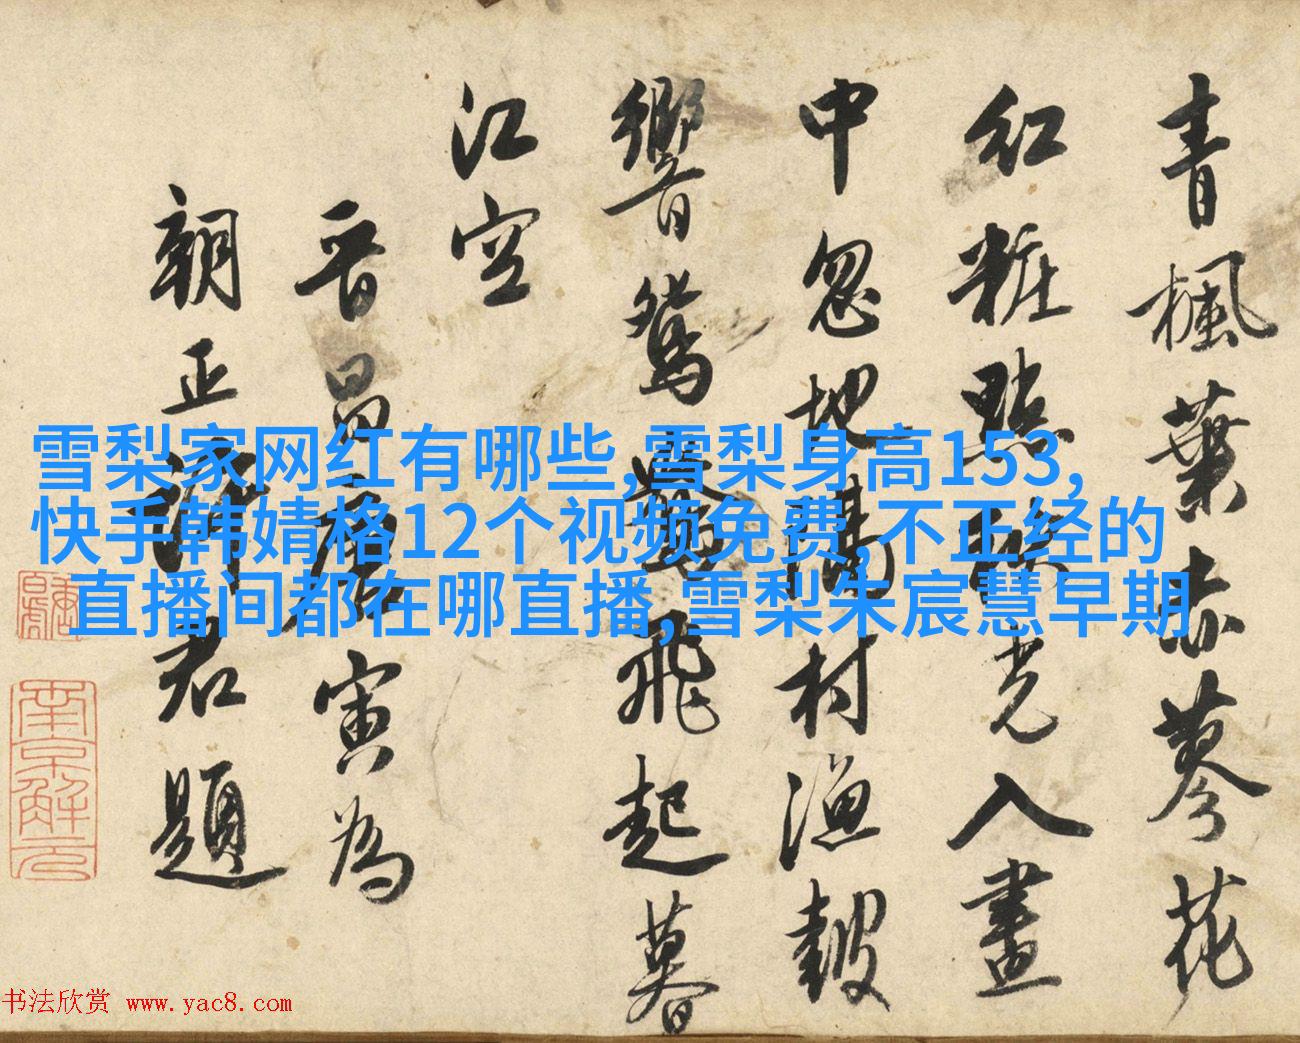 青楓葉赤蓼花
紅粧點秋光入畫
中忽地隔村漁鼓
響鴛鴦飛起暮
江空
晉昌唐寅為
朝正君題
南京解元
雪梨家网红有哪些,雪梨身高153,
快手韩婧格12个视频免费,不正经的
直播间都在哪直播,雪梨朱宸慧早期
书法欣赏 www.yac8.com